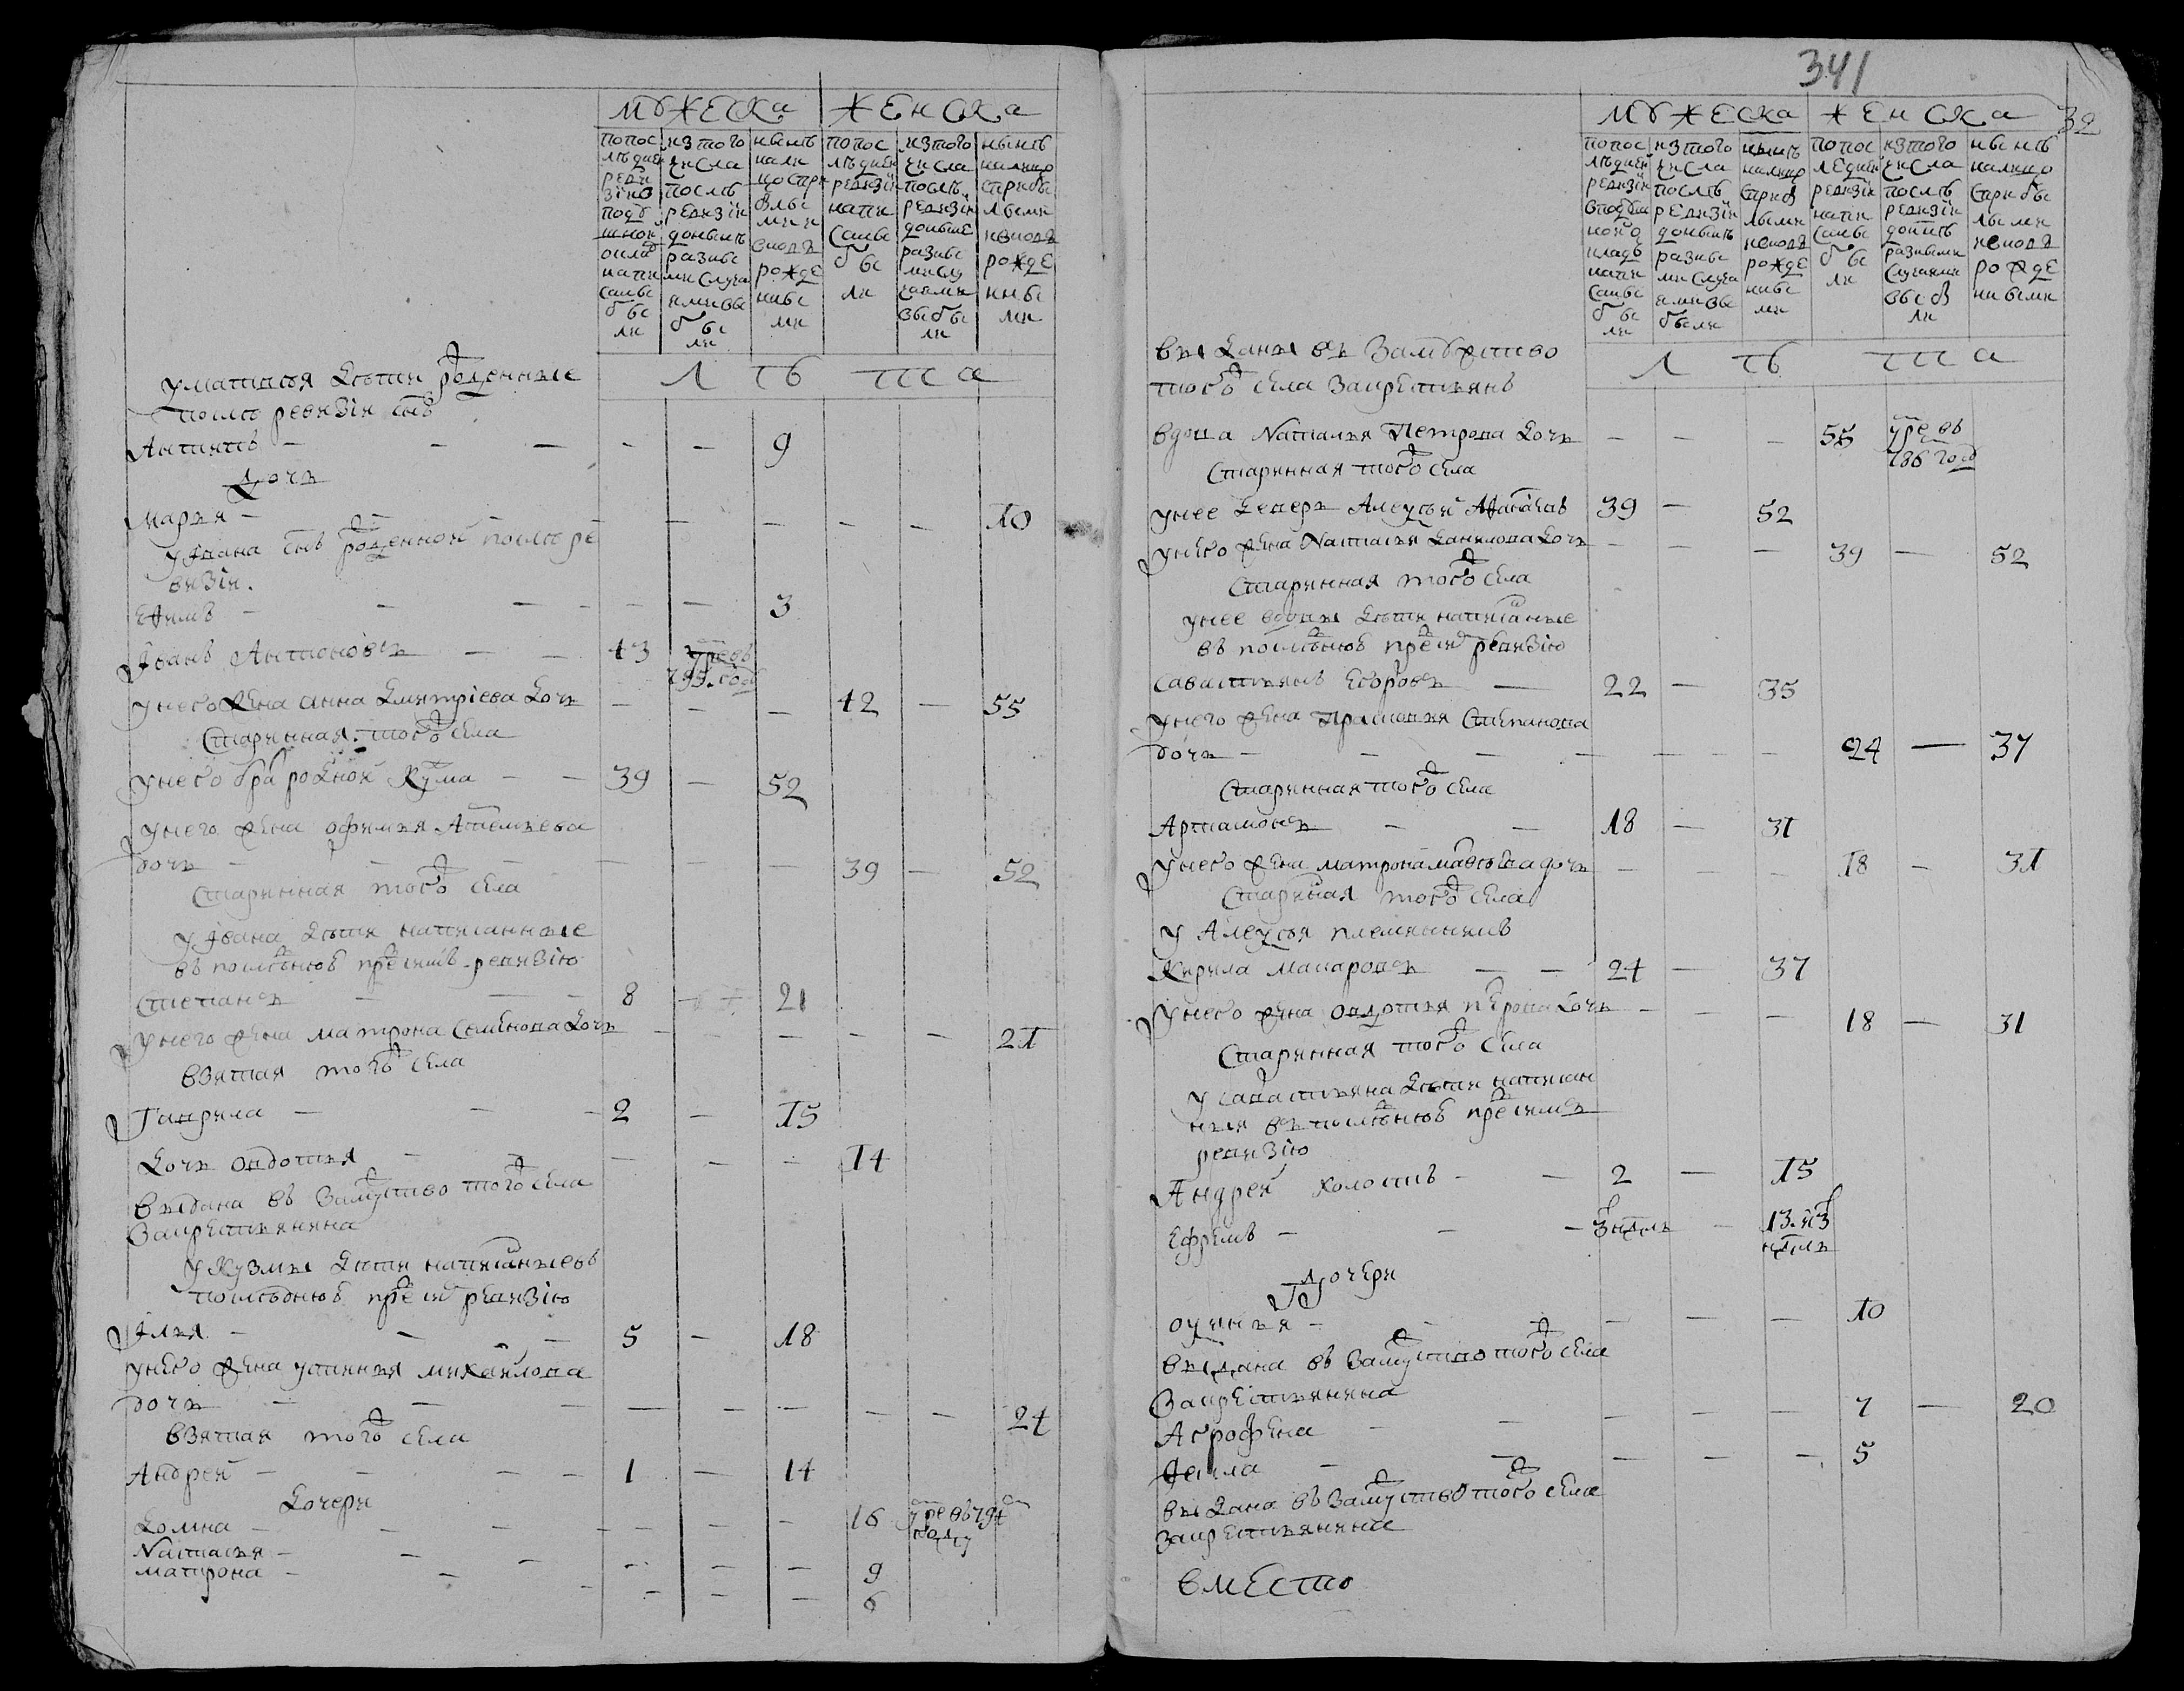 МУЖЕСКА ЖЕНСКА
попос лѣдней ревизіи в подушной окладъ написаны были
изтого числа послѣ ревизіи доныне разными случаями выбыли
нынѣ налицо старыбылыми и вновь рождеными
попос лѣдней ревизіи написаны были
изтого числа послѣ ревизіи доныне разными случаями выбыли
нынѣ налицо старыбылыми и вновь рождеными
ЛѢТА
у матвѣя дѣти рожденные
послѣ ревизіи снъ
Антипъ - - - - - 9
дочь
Марья - - - - - - - - 10
у Ивана снъ рожденной послѣ ре
визіи.
Ефимъ - - - - - - 3
Іванъ Антоновъ - - 43 умре въ 795. год
у него жена анна дмитріева дочь - - - 42 - 55
Старинная того села
у него бра родной Кузма - - 39 - 52
у него жена офимья Артемьева
дочь - - - - - - 39 - 52
Старинная того села
у Івана дѣти написанные
въ последнюю пре ревизію
Степанъ - - - 8 - 21
у него жена матрона Семенова дочь - - - - - 21
взятая того села
Гаврила - - - 2 - 15
дочь овдотья - - - - - 14
выдана въ замуство того села
закрестьянина
у Кузмы дѣти написаные въ
последнюю пре ревизію
Ілья - - - 5 - 18
у него жена устинья михайлова
дочь - - - - - - - - 24
взятая того села
Андрей - - - - 1 - 14
дочери
домна - - - - - - - 16 умре въ 794 году
Наталья - - - - - - 9
матрона - - - - - - 6
341
32
МУЖЕСКА ЖЕНСКА
попос лѣдней ревизіи в подушной окладъ написаны были
изтого числа послѣ ревизіи доныне разными случаями выбыли
нынѣ налицо старыбылыми и вновь рождеными
попос ледней ревизіи написаны были
изтого числа послѣ ревизіи донынѣ разными случаями выбыли
нынѣ налицо старыбылыми и вновь рождеными
ЛѢТА
выданы въ замужство
того села закрестьянъ
вдова Наталья Петрова дочь - - - 55 умре въ 786 год
Старинная того села
у нее деверь Алексѣй 39 - 52
у него жена Наталья данилова дочь - - - 39 - 52
Старинная того села
у нее вдовы дѣти написаные
въ последнюю пре ревизію
Савастьянъ Егоровъ - 22 - 35
у него жена Прасковья Степанова
дочь - - - - - - - 24 - 37
Старинная того села
Артамонъ - - 18 - 31
у него жена матрона дочь - - - 18 - 31
Старинная того села
у Алексѣя племянникъ
Кирила Макаровъ - - 24 - 37
у него жена овдотья дочь - - - 18 - 31
Старинная того села
у савастьяна дѣти написан
ныя въ последнюю пре
ревизію
Андрей холостъ - - 2 - 15
Ефремъ - - - 3 недель - 13. и 3 недель
Дочери
- - - - - - 10
выдана въ замуство того села
закрестьянина
Агрофена - - - - - 7 - 20
Фекла - - - - - 5
выдана въ замуство того села
закрестьянина
вместо